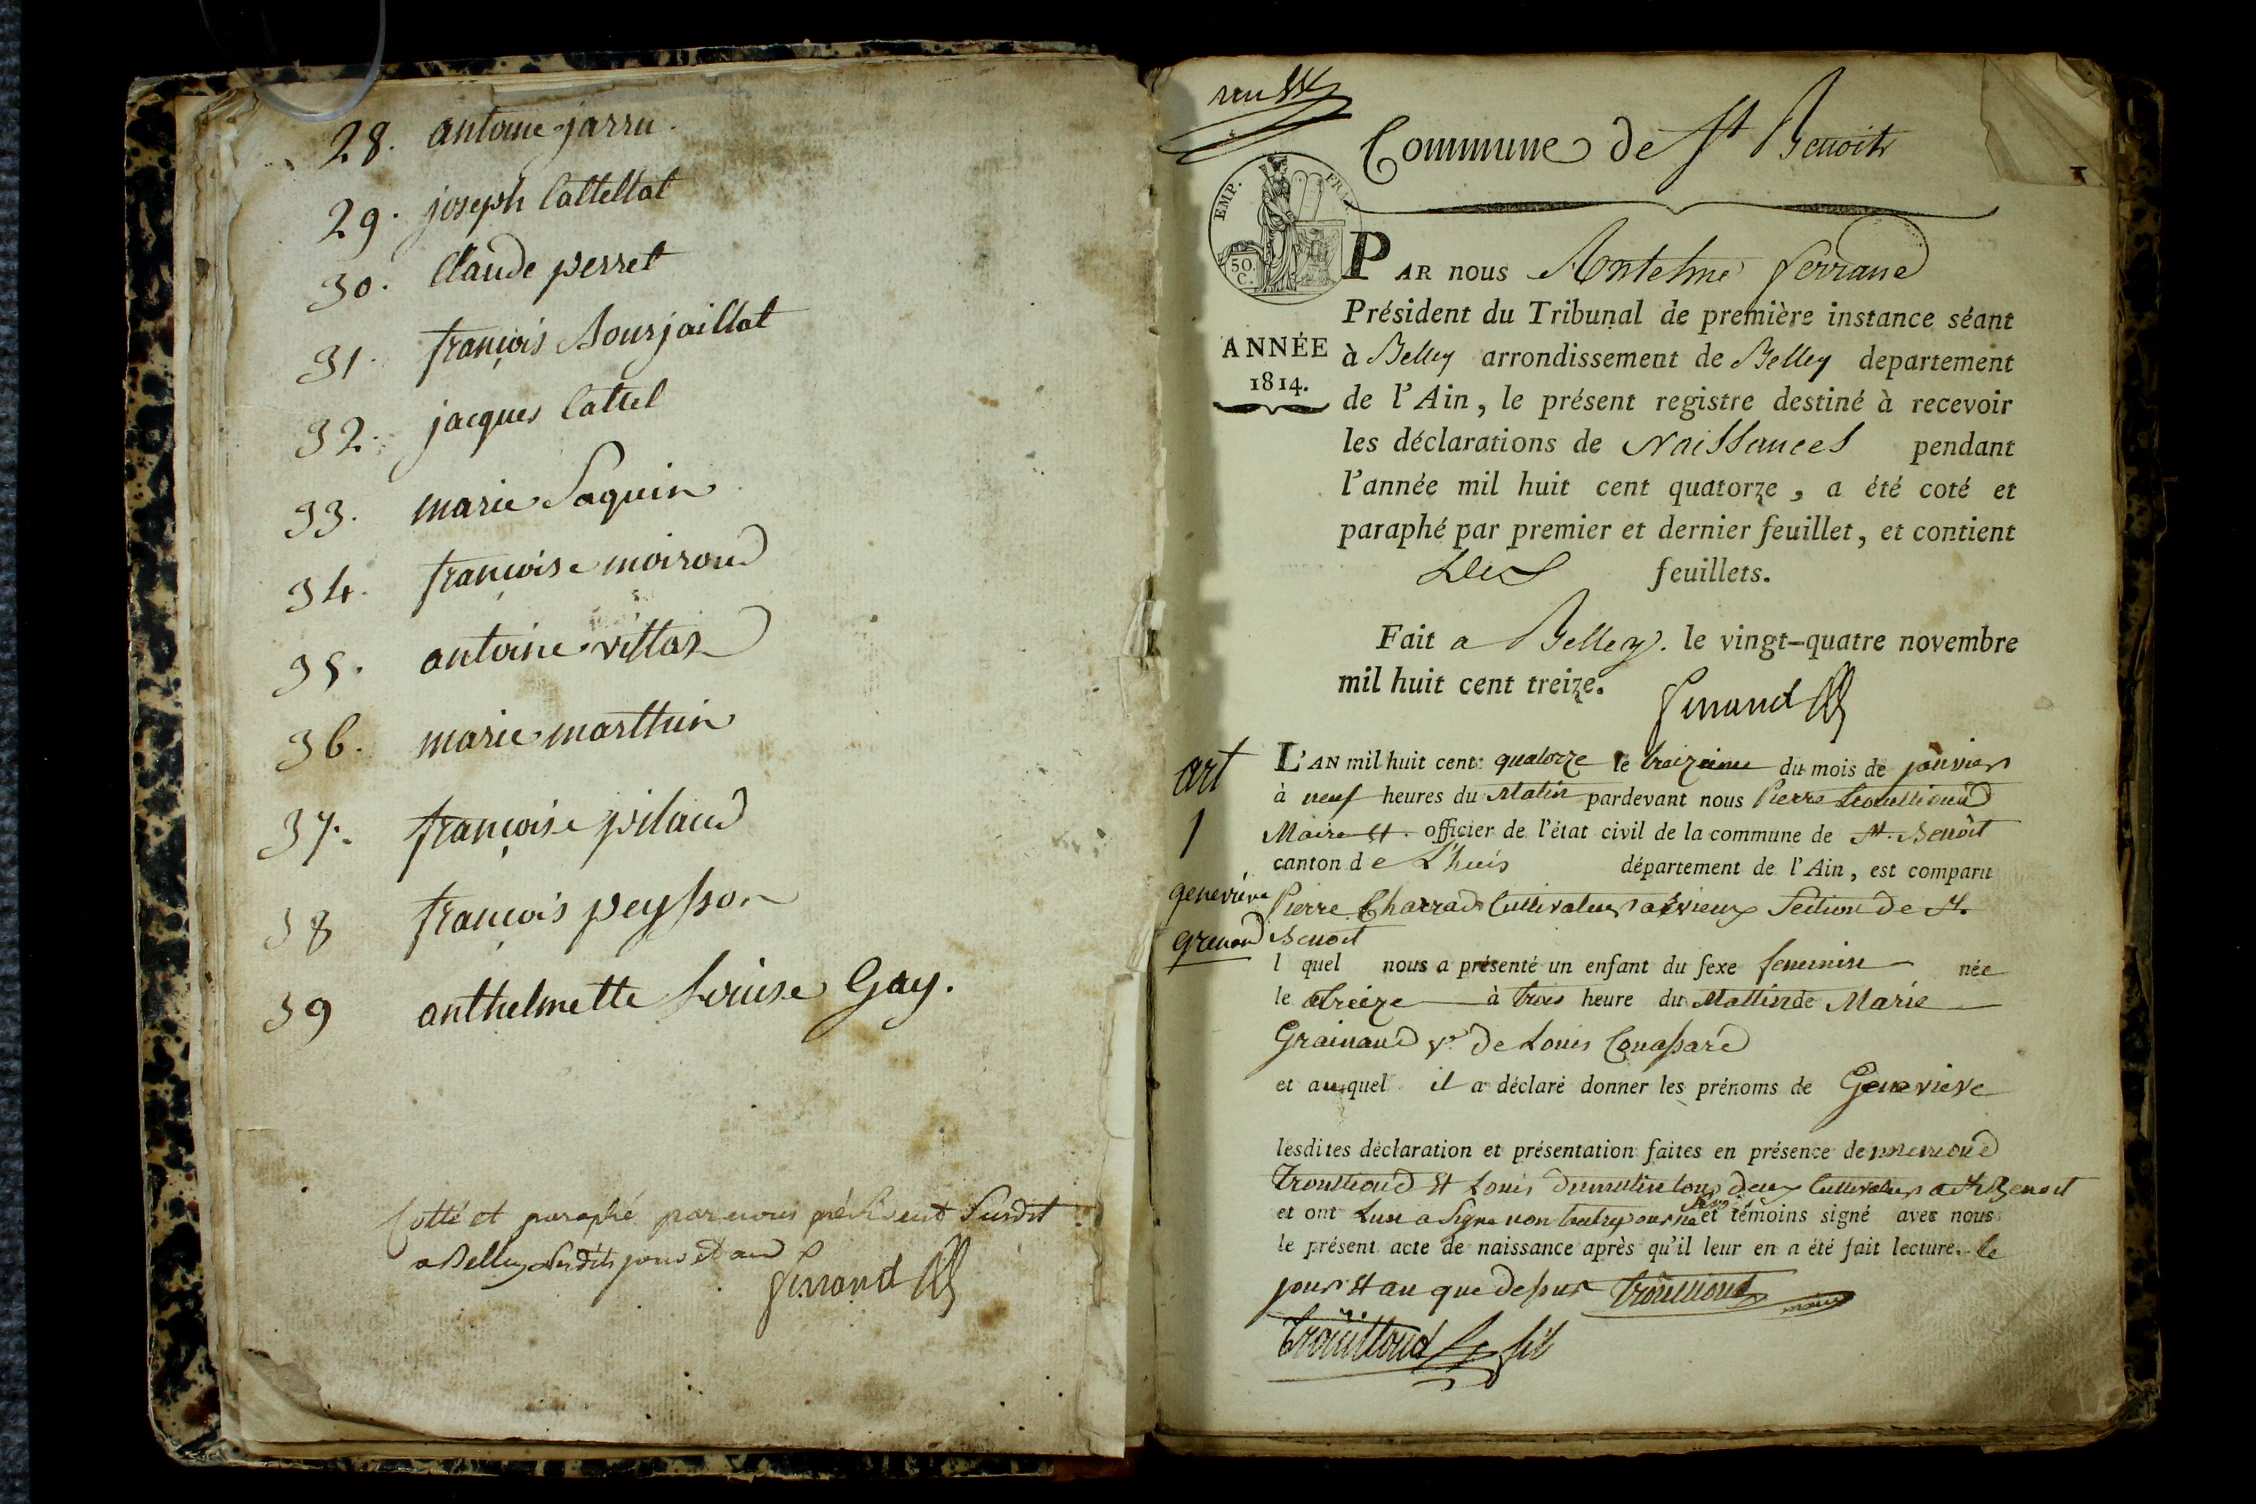 28. antoine jarru.
29. joseph Cattellat
30. Claude perret
31. françois Bourjaillat
32. jacques Cattel
33. marie Saquin
34. françoise moiroud
35. antoine vittoz
36. marie marttin
37. françoise pilaud
38 françois peysson
39 anthelmette Louise Gay.
Cotté et paraphé par nous président Susdit
a Belley Lesdits jour et an
ferrand
Commune de St Benoit
1
EMP. FRA.
50. C.
ANNÉE
1814.
PAR nous Antelme ferrand
Président du Tribunal de première instance séant
à Belley arrondissement de Belley departement
de l'Ain, le présent registre destiné à recevoir
les déclarations de Naissances pendant
l'année mil huit cent quatorze, a été coté et
paraphé par premier et dernier feuillet, et contient
feuillets.
Fait a Belley. le vingt-quatre novembre
mil huit cent treize.
ferrand
art
1
genevieve
grenaud
L'AN mil huit cent quatorze le treizieme du mois de janvier
à neuf heures du Matin pardevant nous Pierre trouillioud
Maire et officier de l'état civil de la commune de St. Benoit
canton de L'huis département de l'Ain, est comparu
Pierre Charrad Cultivateur a évieux Section de St.
Benoit
l quel nous a présenté un enfant du sexe feminin née
le treize à trois heure du Mattin de Marie
Grainaud ve de Louis Conapard
et auquel il a déclaré donner les prénoms de Genevieve
lesdites déclaration et présentation faites en présence de
trouillioud et Louis dumolin tous deux Cultivateurs a St Benoit
et ont Lun a Signé non Lautre pour ne et témoins signé avec nous
le présent acte de naissance après qu'il leur en a été fait lecture. le
jour et an que dessus trouilloud maire
trouilloud fils